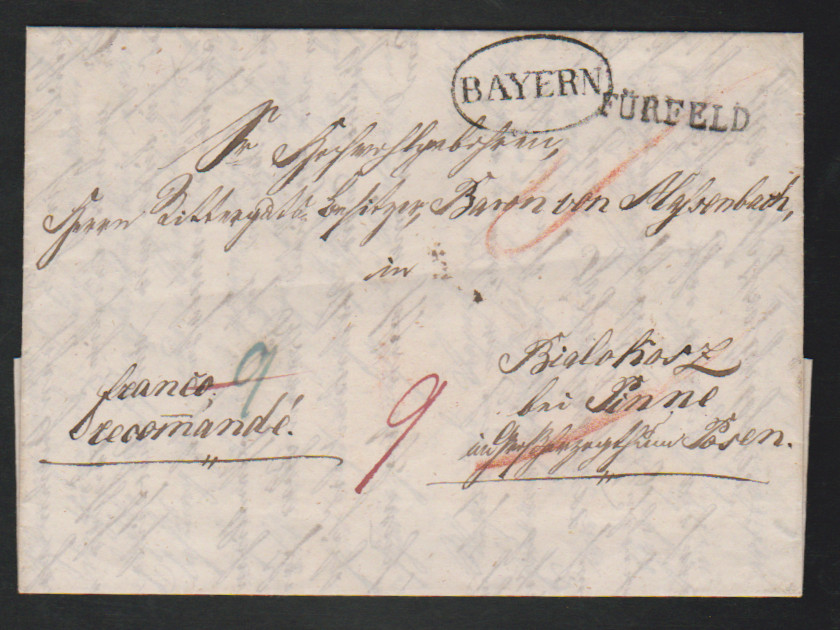 BAYERN
FÜRFELD
Sr Hochwohlgebohren,
Herrn Rittergutsbesitzer, Baron von
in
Bialokosz
bei Pinne
im Großherzogthum Posen.
franco,
recom̄andé.
9
9